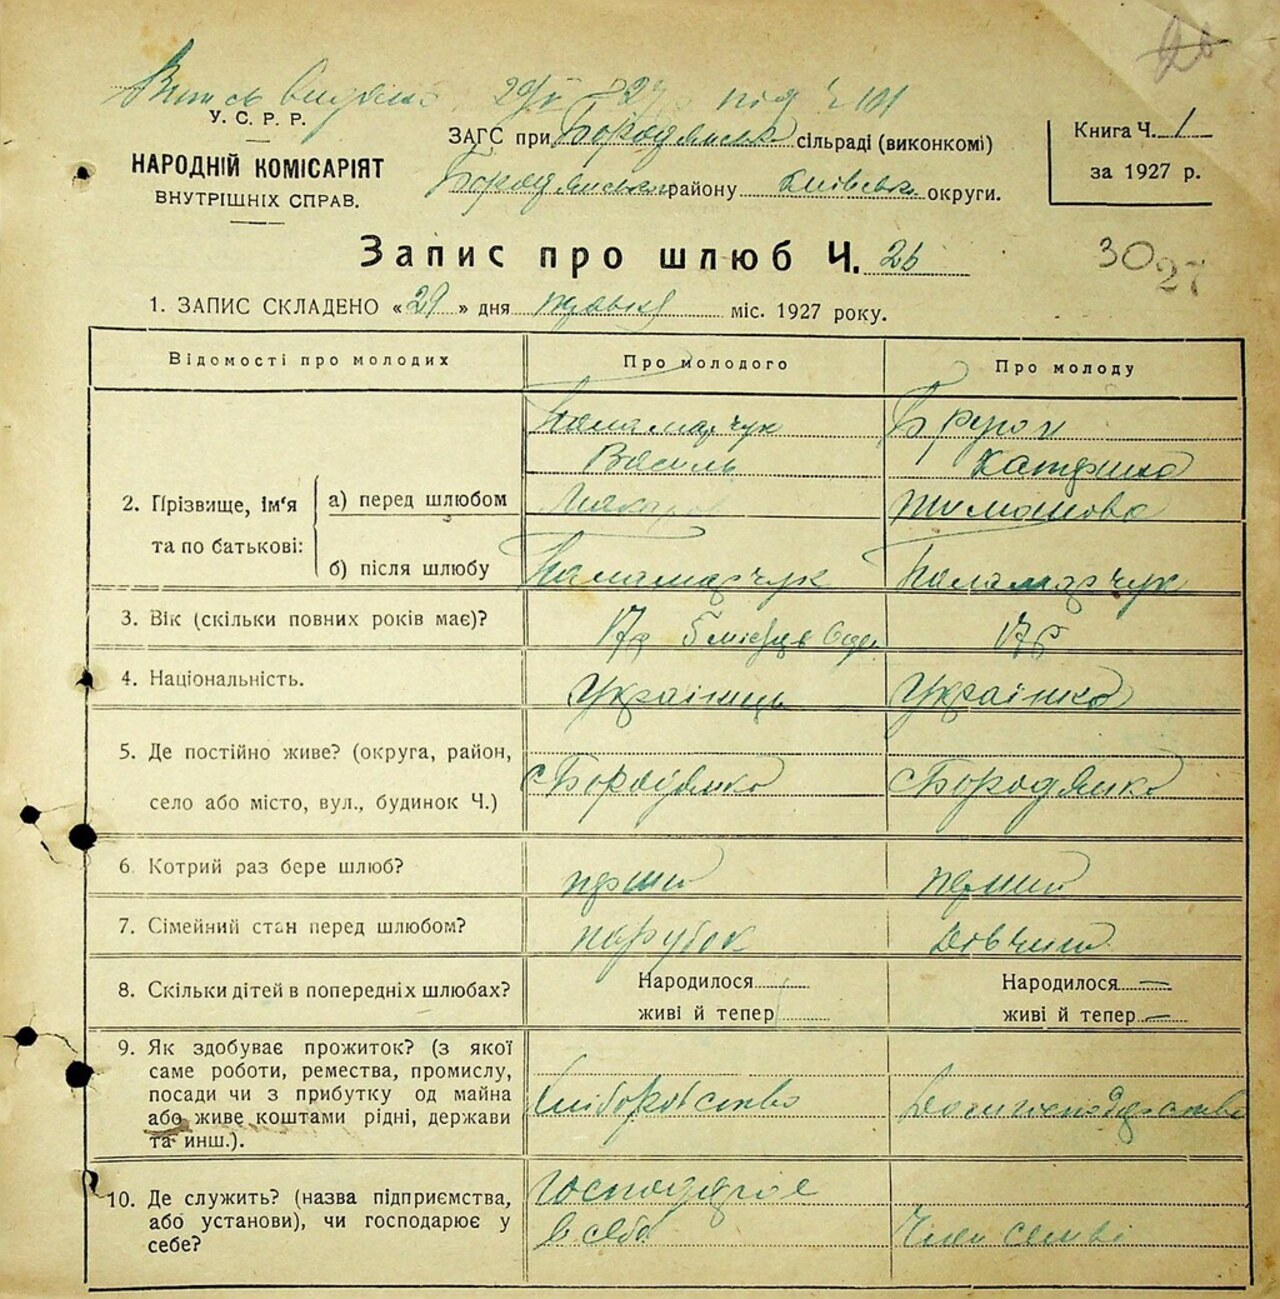 26
Випись 29/V 27 під Ч 101
У. С. Р. Р.
НАРОДНІЙ КОМІСАРІЯТ
ВНУТРІШНІХ СПРАВ.
ЗАГС при Бородянськ сільраді (виконкомі)
Бородянськ району Київськ округи.
Книга Ч. 1
за 1927 р.
Запис про шлюб Ч. 26
30
27
1. ЗАПИС СКЛАДЕНО «29» дня травня міс. 1927 року.
Відомості про молодих
Про молодого
Про молоду
2. Прізвище, ім'я та по батькові:
а) перед шлюбом
Паламарчук
Василь
Катерина
Тимошова
б) після шлюбу
Паламарчук
Паламарчук
3. Вік (скільки повних років має)?
17р 5 місяців
17р
4. Національність.
Українець
Українка
5. Де постійно живе? (округа, район,
село або місто, вул., будинок Ч.)
с Бородянка
с Бородянка
6. Котрий раз бере шлюб?
перший
перший
7. Сімейний стан перед шлюбом?
парубок
дівчина
8. Скільки дітей в попередніх шлюбах?
Народилося
живі й тепер
Народилося —
живі й тепер —
9. Як здобуває прожиток? (з якої
саме роботи, ремества, промислу,
посади чи з прибутку од майна
або живе коштами рідні, держави
та инш.).
Хліборобство
Домгосподарство
10. Де служить? (назва підприємства,
або установи), чи господарює у
себе?
Господарює
в себе
Член семьї